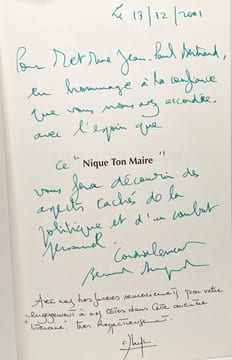 Le 13/12/2001
Pour M et Mme Jean-Paul Bertrand,
en hommage à la confiance
que vous nous avez accordée,
avec l'espoir que
ce "Nique Ton Maire"
vous fera découvrir des
aspects cachés de la
politique et d'un combat
personnel
Cordialement
Avec nos très sincères remerciements par votre
engagement à nos côtés dans cette aventure
littéraire. Très Respectueusement.